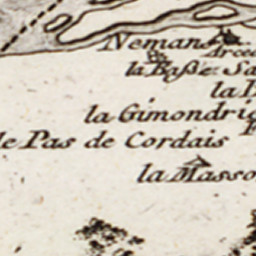 Nemans
la Baße Sa
la
la Gimondri
le Pas de Cordais
la Masso